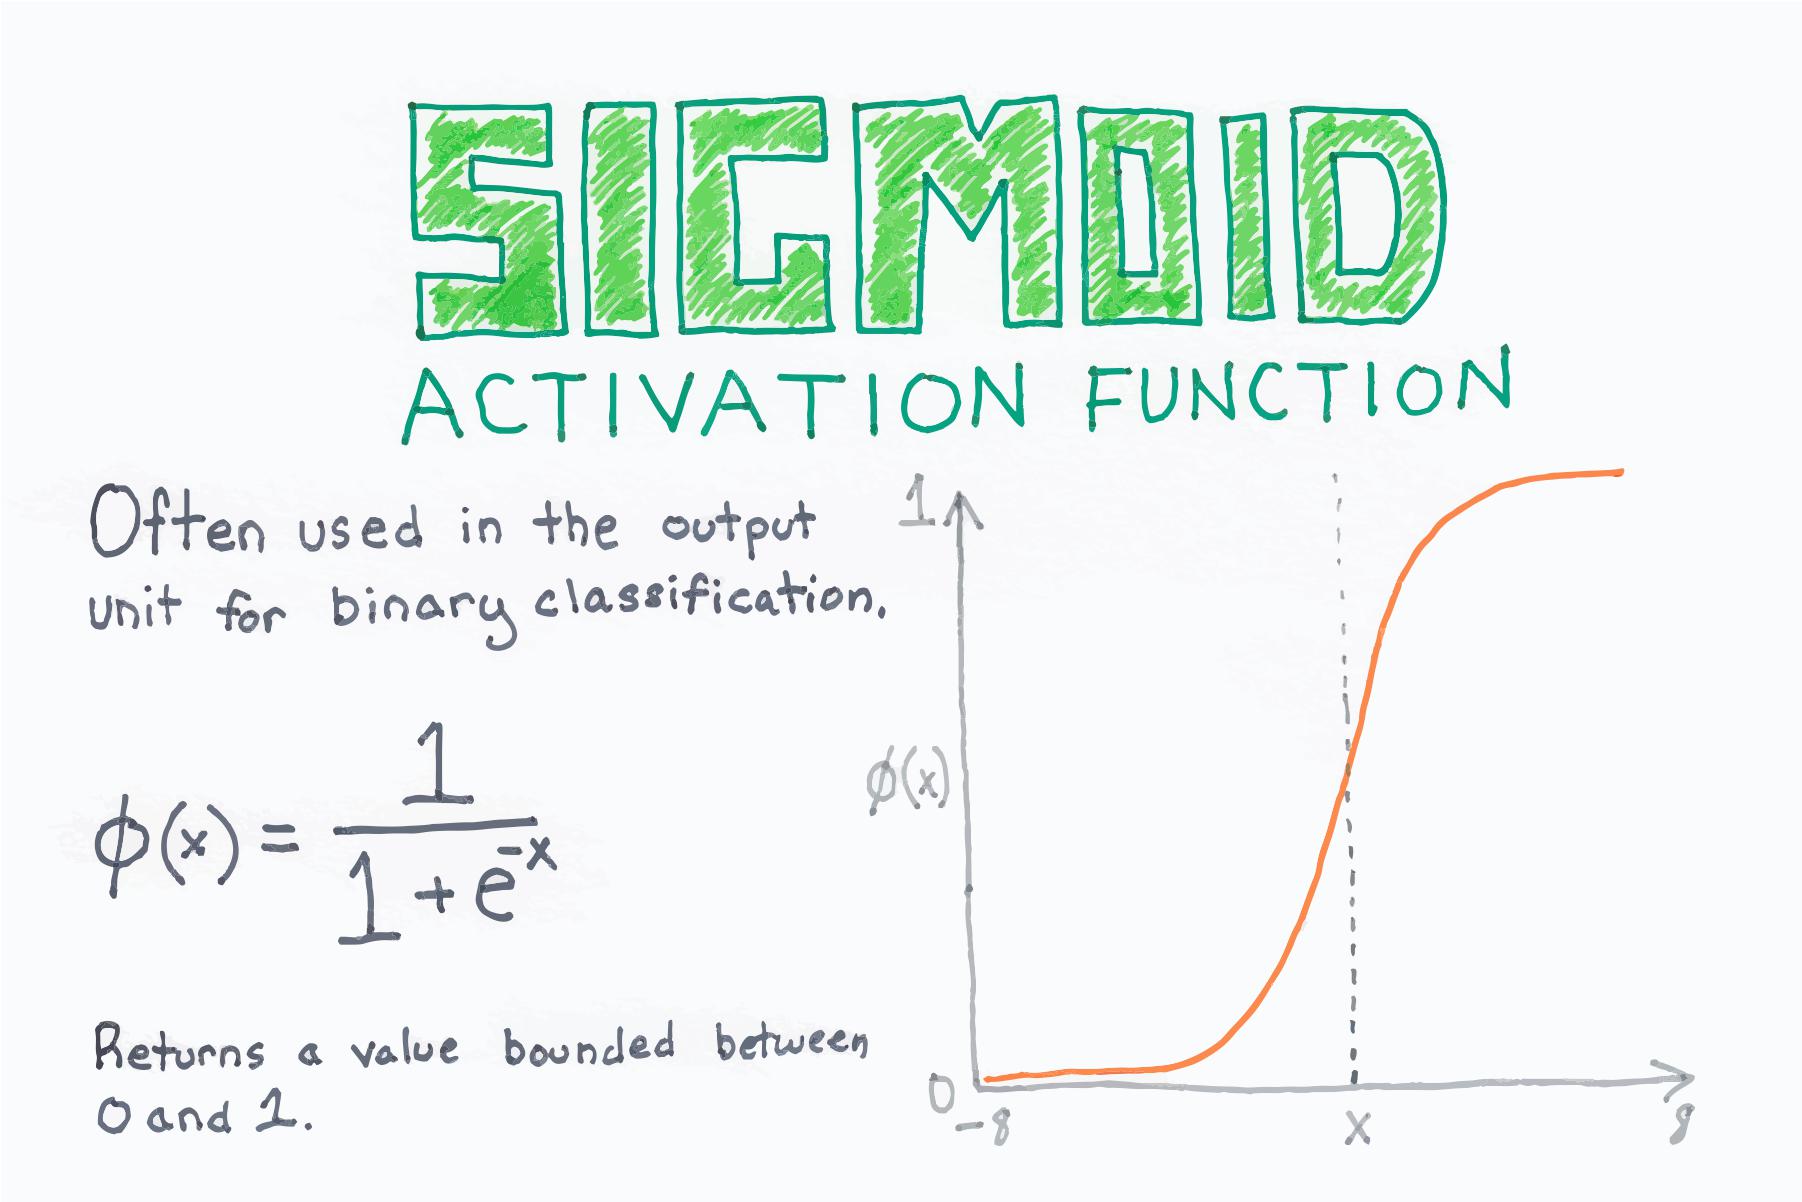 SIGMOID
ACTIVATION FUNCTION
Often used in the output
unit for binary classification.
ϕ(x) = 1 / (1 + e^-x)
Returns a value bounded between
0 and 1.
1
ϕ(x)
0
-8
x
8